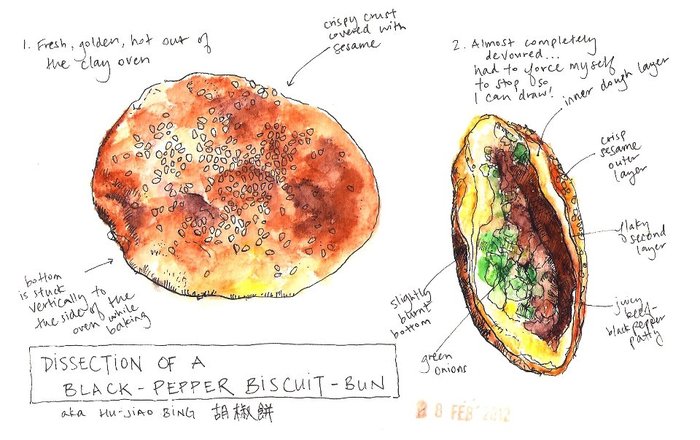 1. Fresh, golden, hot out of
the clay oven
crispy crust
covered with
sesame
bottom
is stuck
vertically to
the side of the
oven while
baking
2. Almost completely
devoured...
had to force myself
to stop so
I can draw!
inner dough layer
crisp
sesame
outer
layer
flaky
second
layer
juicy
beef-
black pepper
patty
slightly
burnt
bottom
green
onions
DISSECTION OF A
BLACK-PEPPER BISCUIT-BUN
aka HU-JIAO BING 胡椒餅
28 FEB 2012